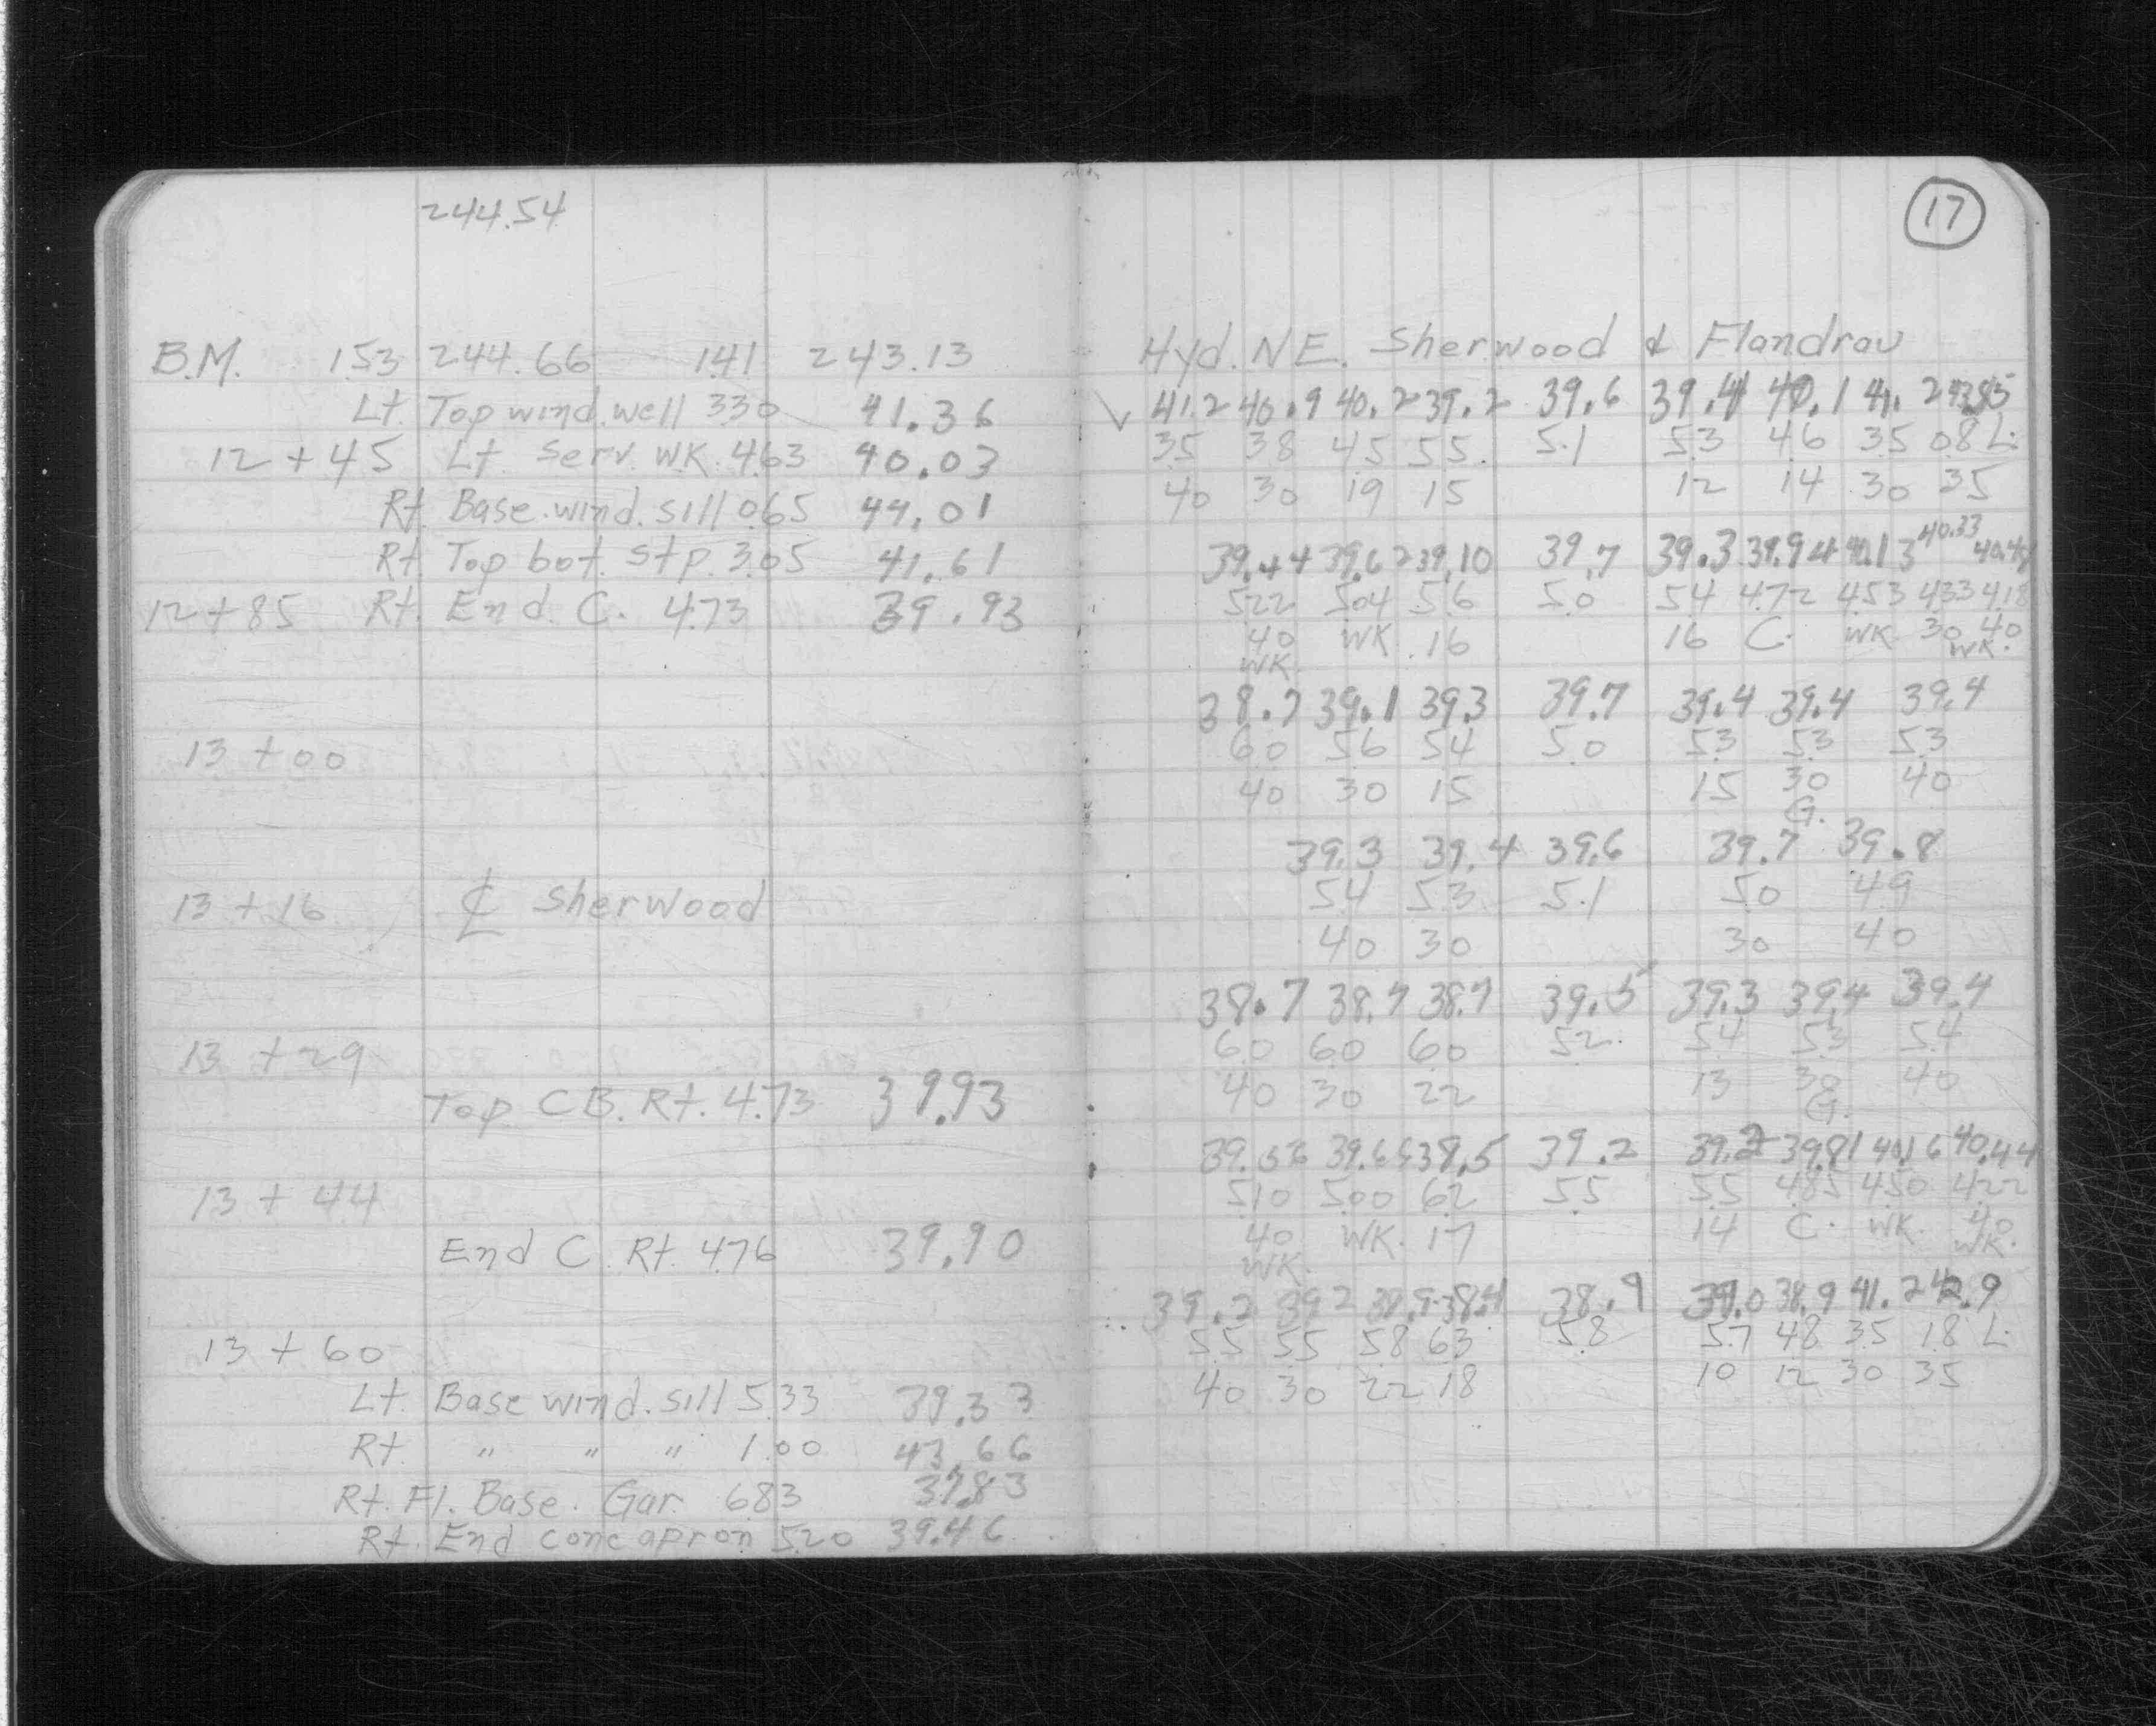 244.54
B.M. 153 244.66 141 243.13
Lt. Top wind. well 330 41.36
12 + 45 Lt. Serv. WK. 463 40.03
Rt. Base. wind. sill 065 44.01
Rt. Top bot. stp. 3.05 41.61
12 + 85 Rt. End. C. 4.73 39.93
13 + 00
13 + 16 ℄ Sherwood
13 + 29
Top CB. Rt. 4.73 39.93
13 + 44
End C. Rt. 476 39.90
13 + 60
Lt. Base wind. sill 5.33 39.33
Rt. " " " 1.00 43.66
Rt. Fl. Base. Gar. 683 37.83
Rt. End conc apron 520 39.46
17
Hyd. N.E. Sherwood & Flandrau
41.2 40.9 40.2 39.2 39.6 39.4 40.1 41.2 43.85
35 38 45 55. 5.1 5.3 4.6 3.5 0.8 L.
40 30 19 15 12 14 30 35
39.44 39.62 39.10 39.7 39.3 39.94 40.13 40.33 40.48
522 504 5.6 5.0 54 472 453 433 418
40 WK. 16 16 C. WK 30 40
WK. WK.
38.7 39.1 39.3 39.7 39.4 39.4 39.4
60 56 54 5.0 53 53 53
40 30 15 15 30 40
G.
39.3 39.4 39.6 39.7 39.8
54 53 5.1 50 49
40 30 30 40
38.7 38.7 38.7 39.5 39.3 39.4 39.4
60 60 60 52. 54 53 54
40 30 22 13 30 40
G.
39.56 39.66 38.5 39.2 39.2 39.81 40.16 40.44
510 500 62 55 5.5 485 450 422
40 WK. 17 14 C. WK. 40
WK. WK.
39.2 39.2 38.9 38.4 38.9 39.0 39.9 41.2 42.9
55 55 58 63 5.8 5.7 48 3.5 1.8 L.
40 30 22 18 10 12 30 35